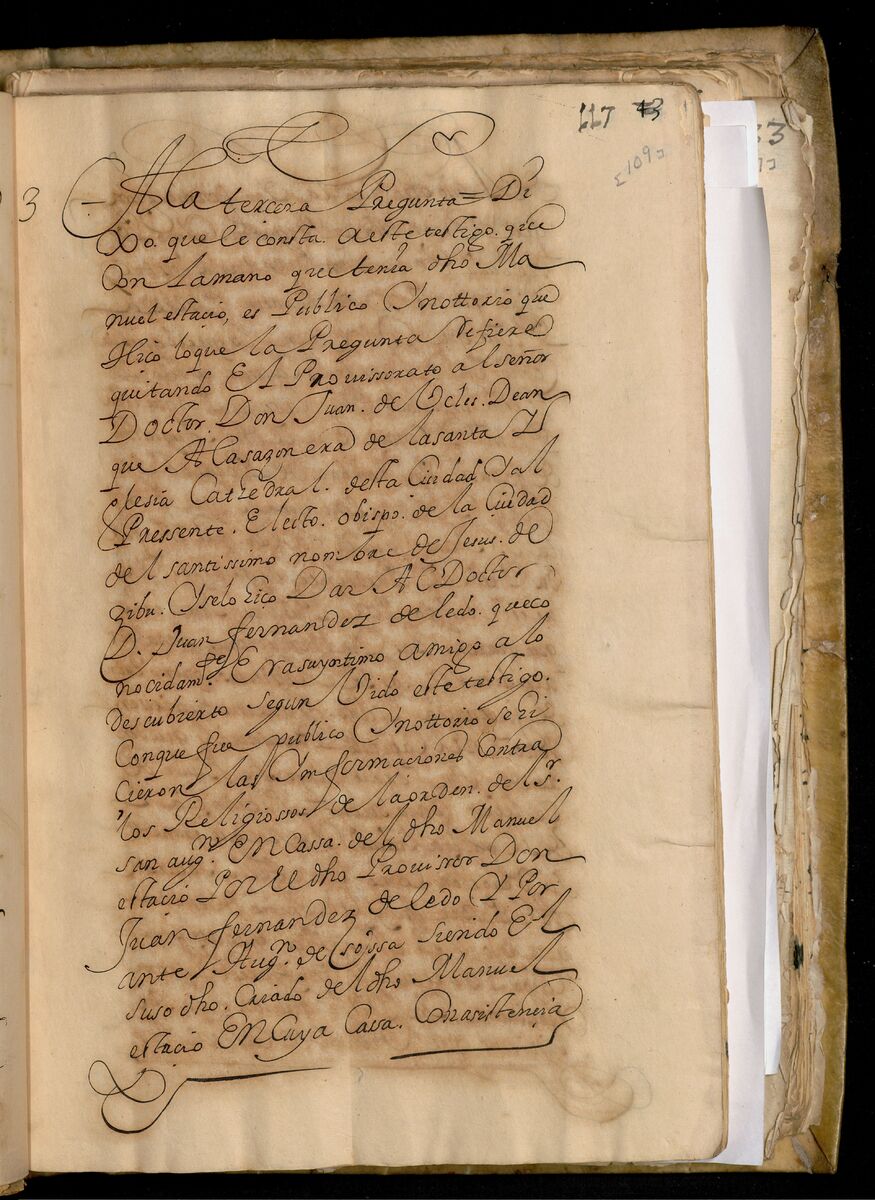 117 43
[109]
33
3 A la tercera Pregunta = Di
xo. que le consta. aeste testigo. que
Con lamano que tenia dho Ma
nuel estacio, es Publico Y nottorio que
Hiço loque la Pregunta Refiere
quitando El Prouissorato al señor
Doctor. Don Juan. de Veles. Dean
que A lasazon era de lasanta Y
glesia Cathedral. desta Ciudad Y al
Pressente. Electo. obispo. de la Ciudad
del santissimo nombre de Jesus. de
zibu. Y selo hiço Dar Al Doctor
D. Juan fernandez de ledo. que co
nocidamte Era suyntimo amigo a lo
descubierto segun Vido este testigo.
Conque fue publico Y nottorio se hi
cieron las Ynformaciones Contra
los Religiossos de la orden. del Sr.
san augn. EN Cassa. del dho Manuel
estacio Por El dho Prouisor Don
Juan fernandez de ledo Y Por
ante Augn. de Sossa siendo El
suso dho. Criado del dho Manuel
estacio EN Cuya Cassa. Con asistencia